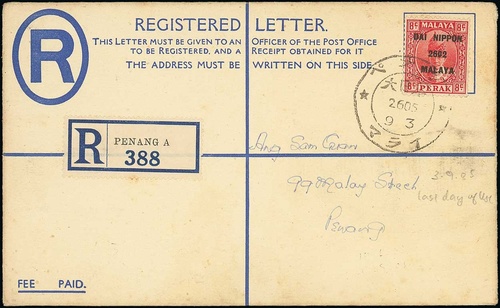 R
REGISTERED LETTER.
THIS LETTER MUST BE GIVEN TO AN OFFICER OF THE POST OFFICE
TO BE REGISTERED, AND A RECEIPT OBTAINED FOR IT
THE ADDRESS MUST BE WRITTEN ON THIS SIDE
MALAYA
8c 8c
DAI NIPPON
2602
MALAYA
8c PERAK 8c
2605
9 3
マライ
R PENANG A
388
Ang Sam
99 Malay Street
Penang
3.9.45
last day of use
FEE PAID.